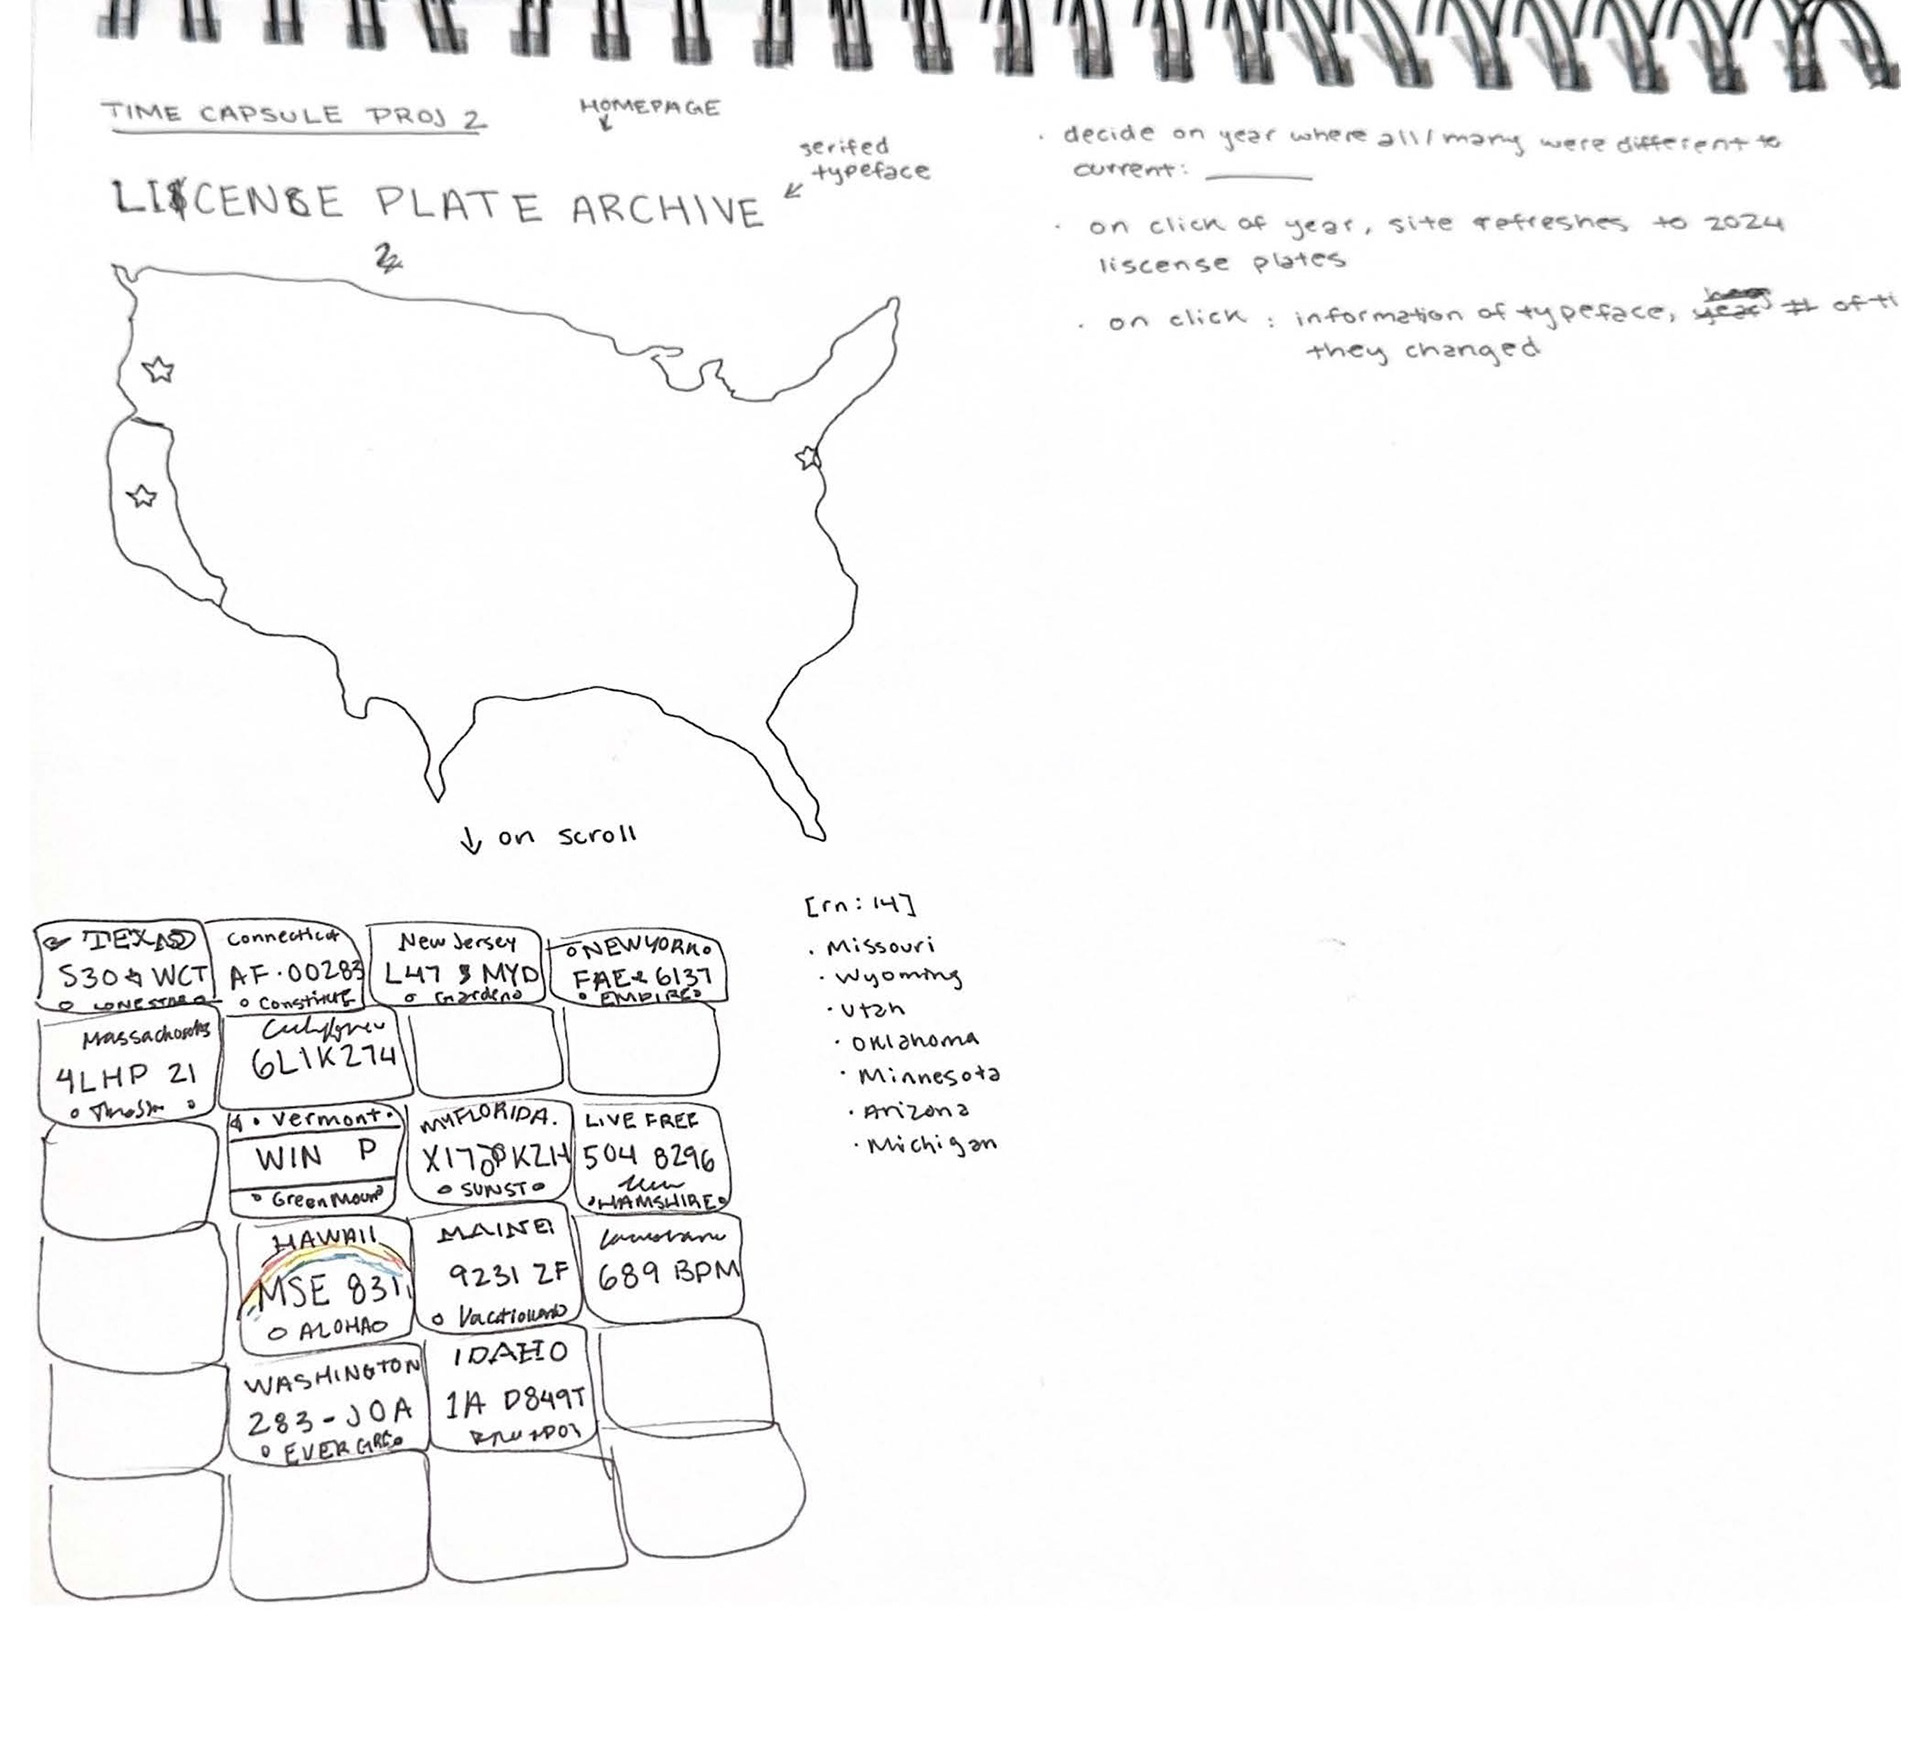 TIME CAPSULE PROJ 2
HOMEPAGE
serifed
typeface
LISCENSE PLATE ARCHIVE
decide on year where all/many were different to
current: ______
on click of year, site refreshes to 2024
liscense plates
on click: information of typeface, # of ti
they changed
↓ on scroll
TEXAS
S30 WCT
LONESTAR
Connecticut
AF·00283
Constitut
New Jersey
L47 MYD
Garden
NEW YORK
FAE 6137
EMPIRE
Massachusetts
4LHP 21
6L1K274
Vermont
WIN P
Green Moun
MYFLORIDA.
X17 KZH
SUNST
LIVE FREE
504 8296
New
HAMSHIRE
HAWAII
MSE 831
ALOHA
MAINE
9231 ZF
Vacation
689 BPM
WASHINGTON
283-JOA
EVERGRE
IDAHO
1A D849T
[rn: 14]
Missouri
Wyoming
Utah
Oklahoma
Minnesota
Arizona
Michigan